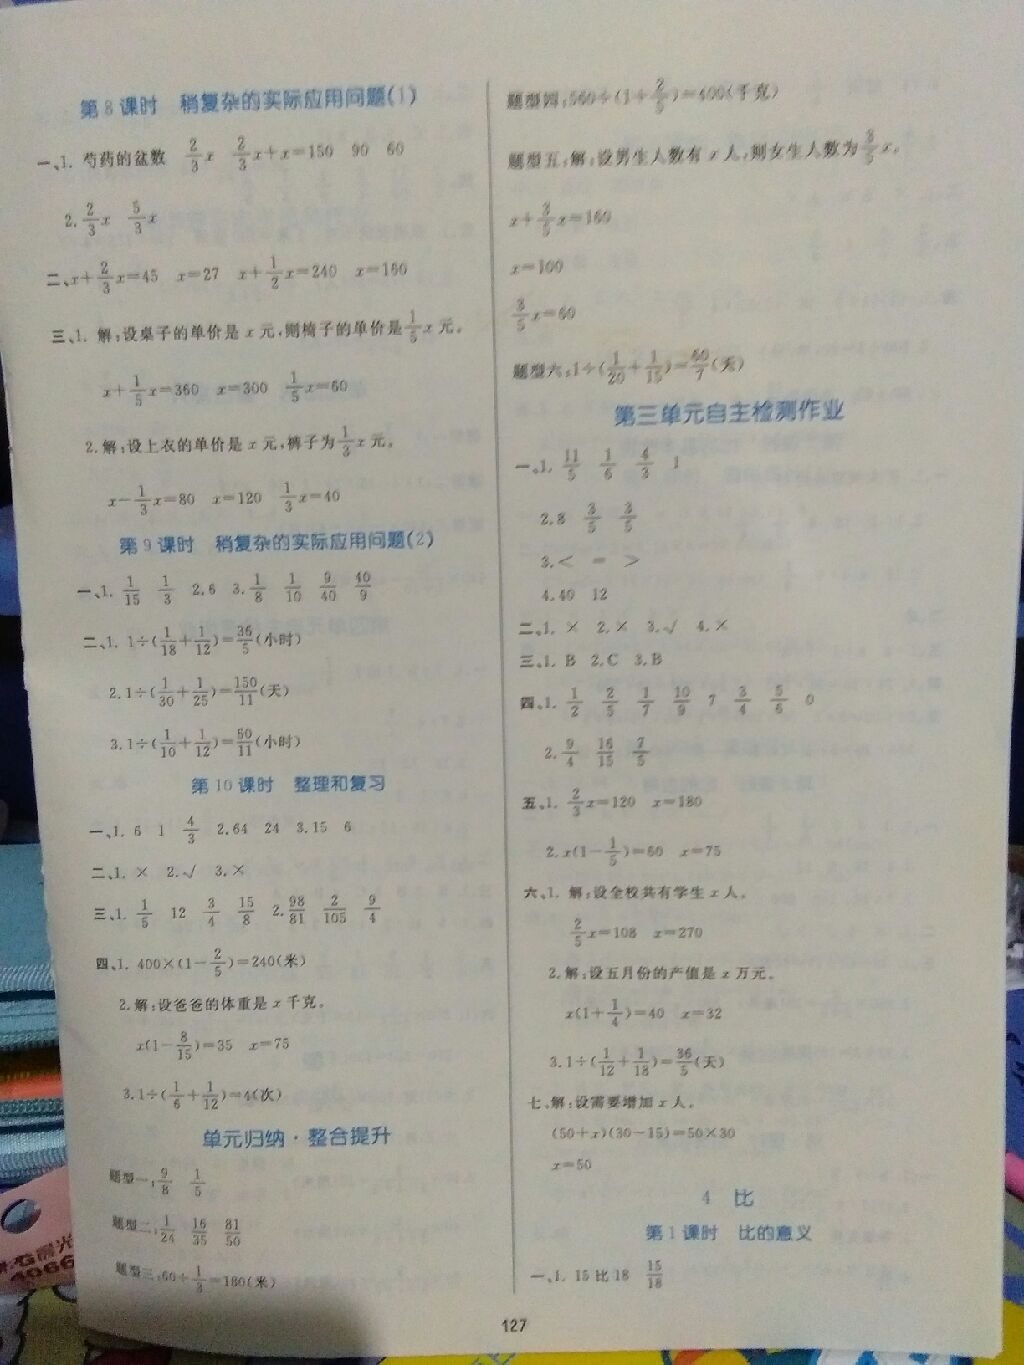 第8课时 稍复杂的实际应用问题(1)
一、1. 芍药的盆数 2/3x 2/3x+x=150 90 60
2. 2/3x 5/3x
二、x+2/3x=45 x=27 x+1/2x=240 x=160
三、1. 解:设桌子的单价是x元,则椅子的单价是1/5x元。
x+1/5x=360 x=300 1/5x=60
2.解:设上衣的单价是x元,裤子为1/3x元。
x-1/3x=80 x=120 1/3x=40
第9课时 稍复杂的实际应用问题(2)
一、1. 1/15 1/3 2.6 3. 1/8 1/10 9/40 40/9
二、1. 1÷(1/18+1/12)=36/5(小时)
2.1÷(1/30+1/25)=150/11(天)
3.1÷(1/10+1/12)=60/11(小时)
第10课时 整理和复习
一、1. 6 1 4/3 2.64 24 3.15 6
二、1. × 2.√ 3.×
三、1. 1/5 12 3/4 15/8 2. 98/81 2/105 9/4
四、1. 400×(1-2/5)=240(米)
2.解:设爸爸的体重是x千克。
x(1-8/15)=35 x=75
3.1÷(1/6+1/12)=4(次)
单元归纳·整合提升
题型一:9/8 1/5
题型二:1/24 16/35 81/50
题型三:60÷1/3=180(米)
题型四:560÷(1+2/5)=400(千克)
题型五:解:设男生人数有x人,则女生人数为3/5x。
x+3/5x=160
x=100
3/5x=60
题型六:1÷(1/20+1/15)=60/7(天)
第三单元自主检测作业
一、1. 11/5 1/6 4/3 1
2.8 3/5 3/5
3.< = >
4.40 12
二、1. × 2.× 3.√ 4.×
三、1. B 2.C 3.B
四、1. 1/2 2/5 1/7 10/9 7 3/4 5/6 0
2. 9/4 16/15 7/5
五、1. 2/3x=120 x=180
2.x(1-1/5)=60 x=75
六、1. 解:设全校共有学生x人。
2/5x=108 x=270
2.解:设五月份的产值是x万元。
x(1+1/4)=40 x=32
3.1÷(1/12+1/18)=36/5(天)
七、解:设需要增加x人。
(50+x)(30-15)=50×30
x=50
4 比
第1课时 比的意义
一、1. 15比18 15/18
127